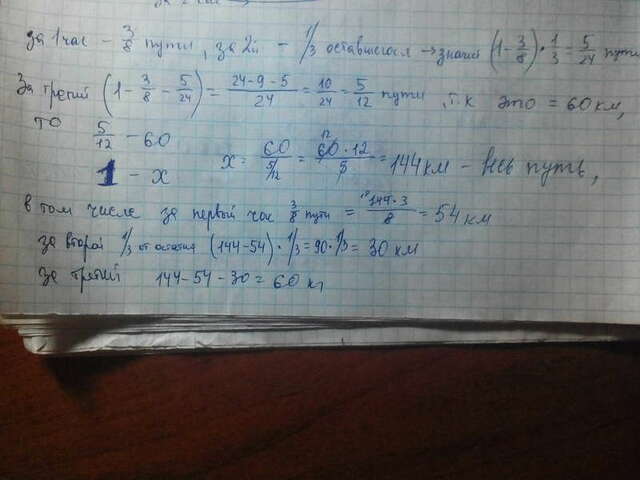 за 1 час – 3/8 пути, за 2й – 1/3 оставшегося → значит (1 - 3/8) · 1/3 = 5/24 пути
За третий (1 - 3/8 - 5/24) = (24 - 9 - 5)/24 = 10/24 = 5/12 пути, т.к это = 60 км,
то 5/12 – 60
1 – x
x = 60/(5/12) = 60 · 12/5 = 144 км – весь путь,
в том числе за первый час 3/8 пути = 144 · 3/8 = 54 км
за второй 1/3 от остатка (144-54) · 1/3 = 90 · 1/3 = 30 км
за третий 144 - 54 - 30 = 60 км